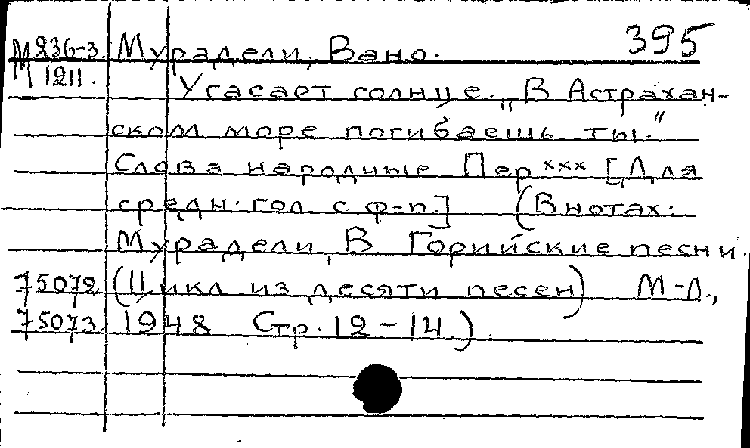 395
М 236-3 Мурадели, Вано.
1211.
Угасает солнце. „В Астрахан-
ском море погибаешь ты."
Слова народные Пер ххх [Для
средн. гол. с ф-п.] (В нотах:
Мурадели, В. Горийские песни.
75072 (Цикл из десяти песен) М-Л.,
75073 1948 Стр. 12-14)